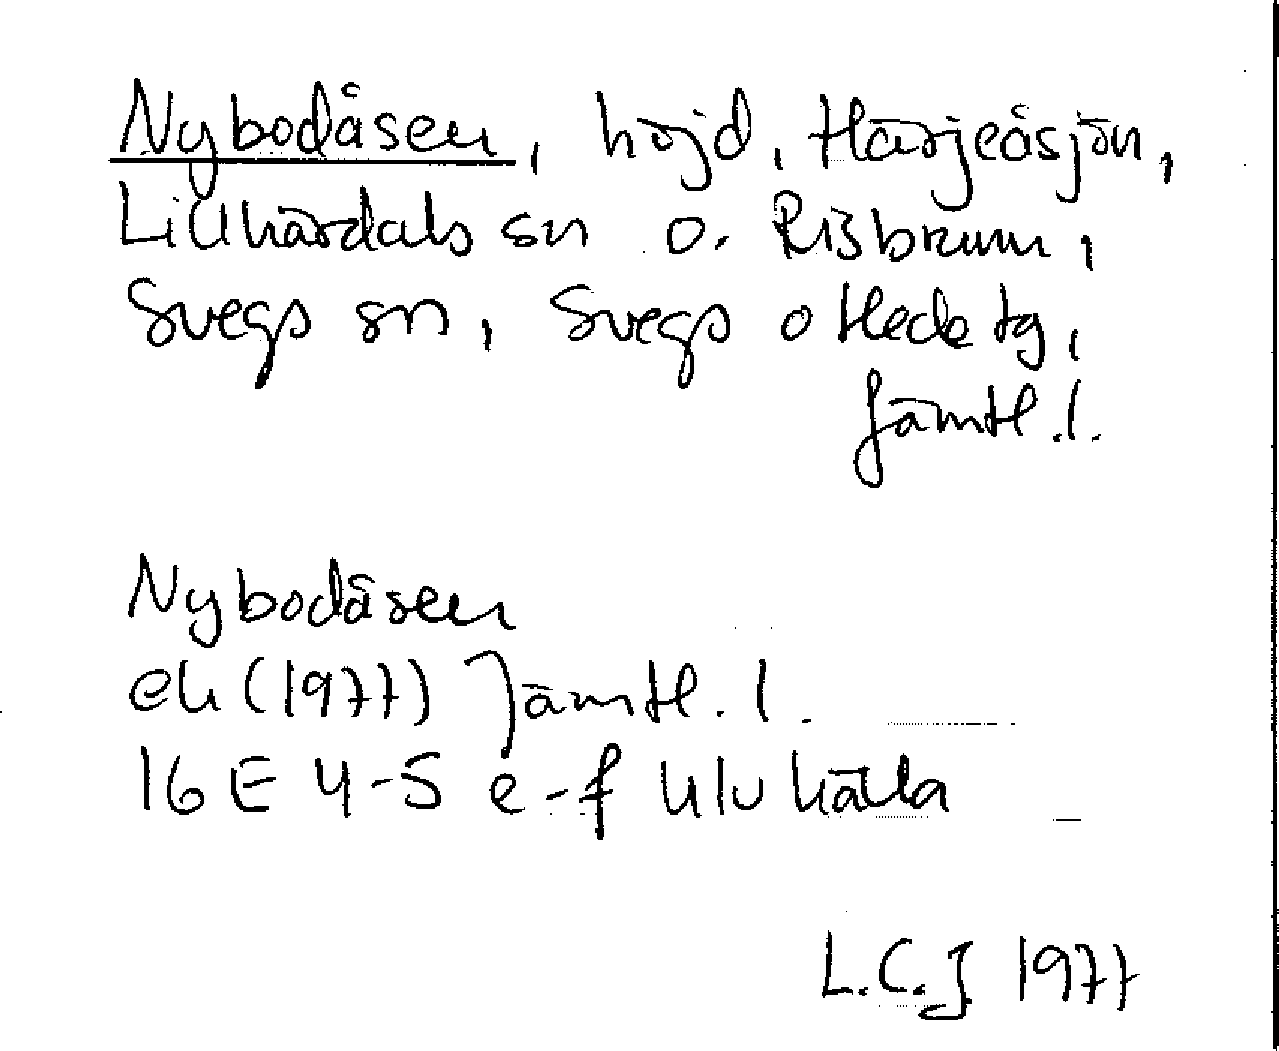 Nybodåsen, höjd, Härjeåsjön,
Lillhärdals sn o. Risbrunn,
Svegs sn, Svegs o Hede tg,
Jämtl. l.
Nybodåsen
ek (1977) Jämtl. l.
16 E 4-5 e-f Ulvkälla
L.C.J. 1977